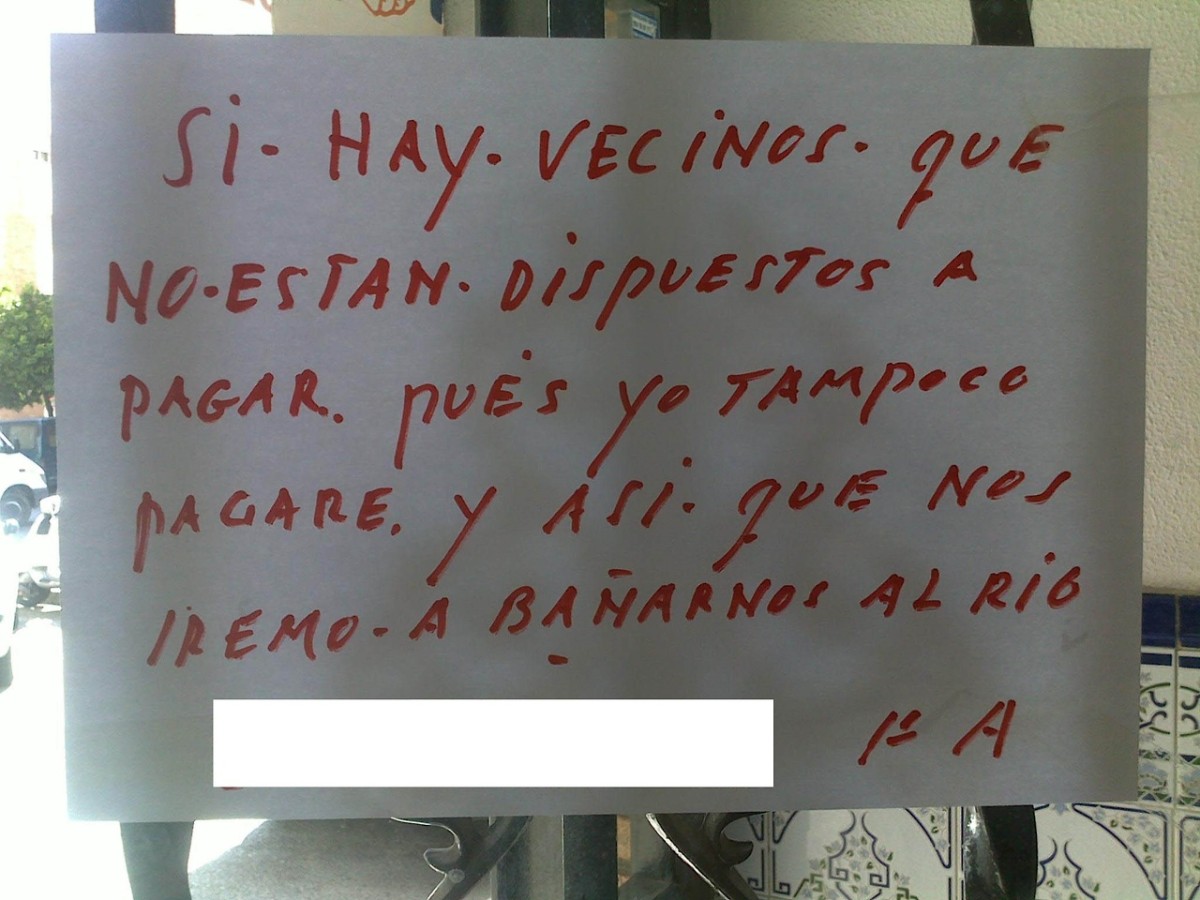 Si · HAY · VECiNOS · QUE
NO · ESTAN · DiSPUESTOS A
PAGAR. PUĖS YO TAMPOCO
PAGARE. Y ASi · QUE NOS
IREMO - A BAÑARNOS AL RiO
1º A